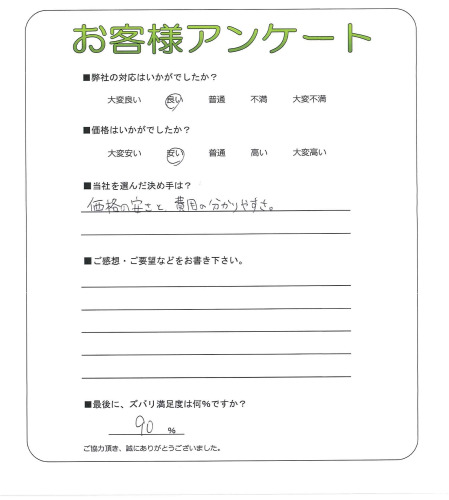 お客様アンケート
■弊社の対応はいかがでしたか？
大変良い 良い 普通 不満 大変不満
■価格はいかがでしたか？
大変安い 安い 普通 高い 大変高い
■当社を選んだ決め手は？
価格の安さと、費用の分かりやすさ。
■ご感想・ご要望などをお書き下さい。
■最後に、ズバリ満足度は何％ですか？
90 ％
ご協力頂き、誠にありがとうございました。